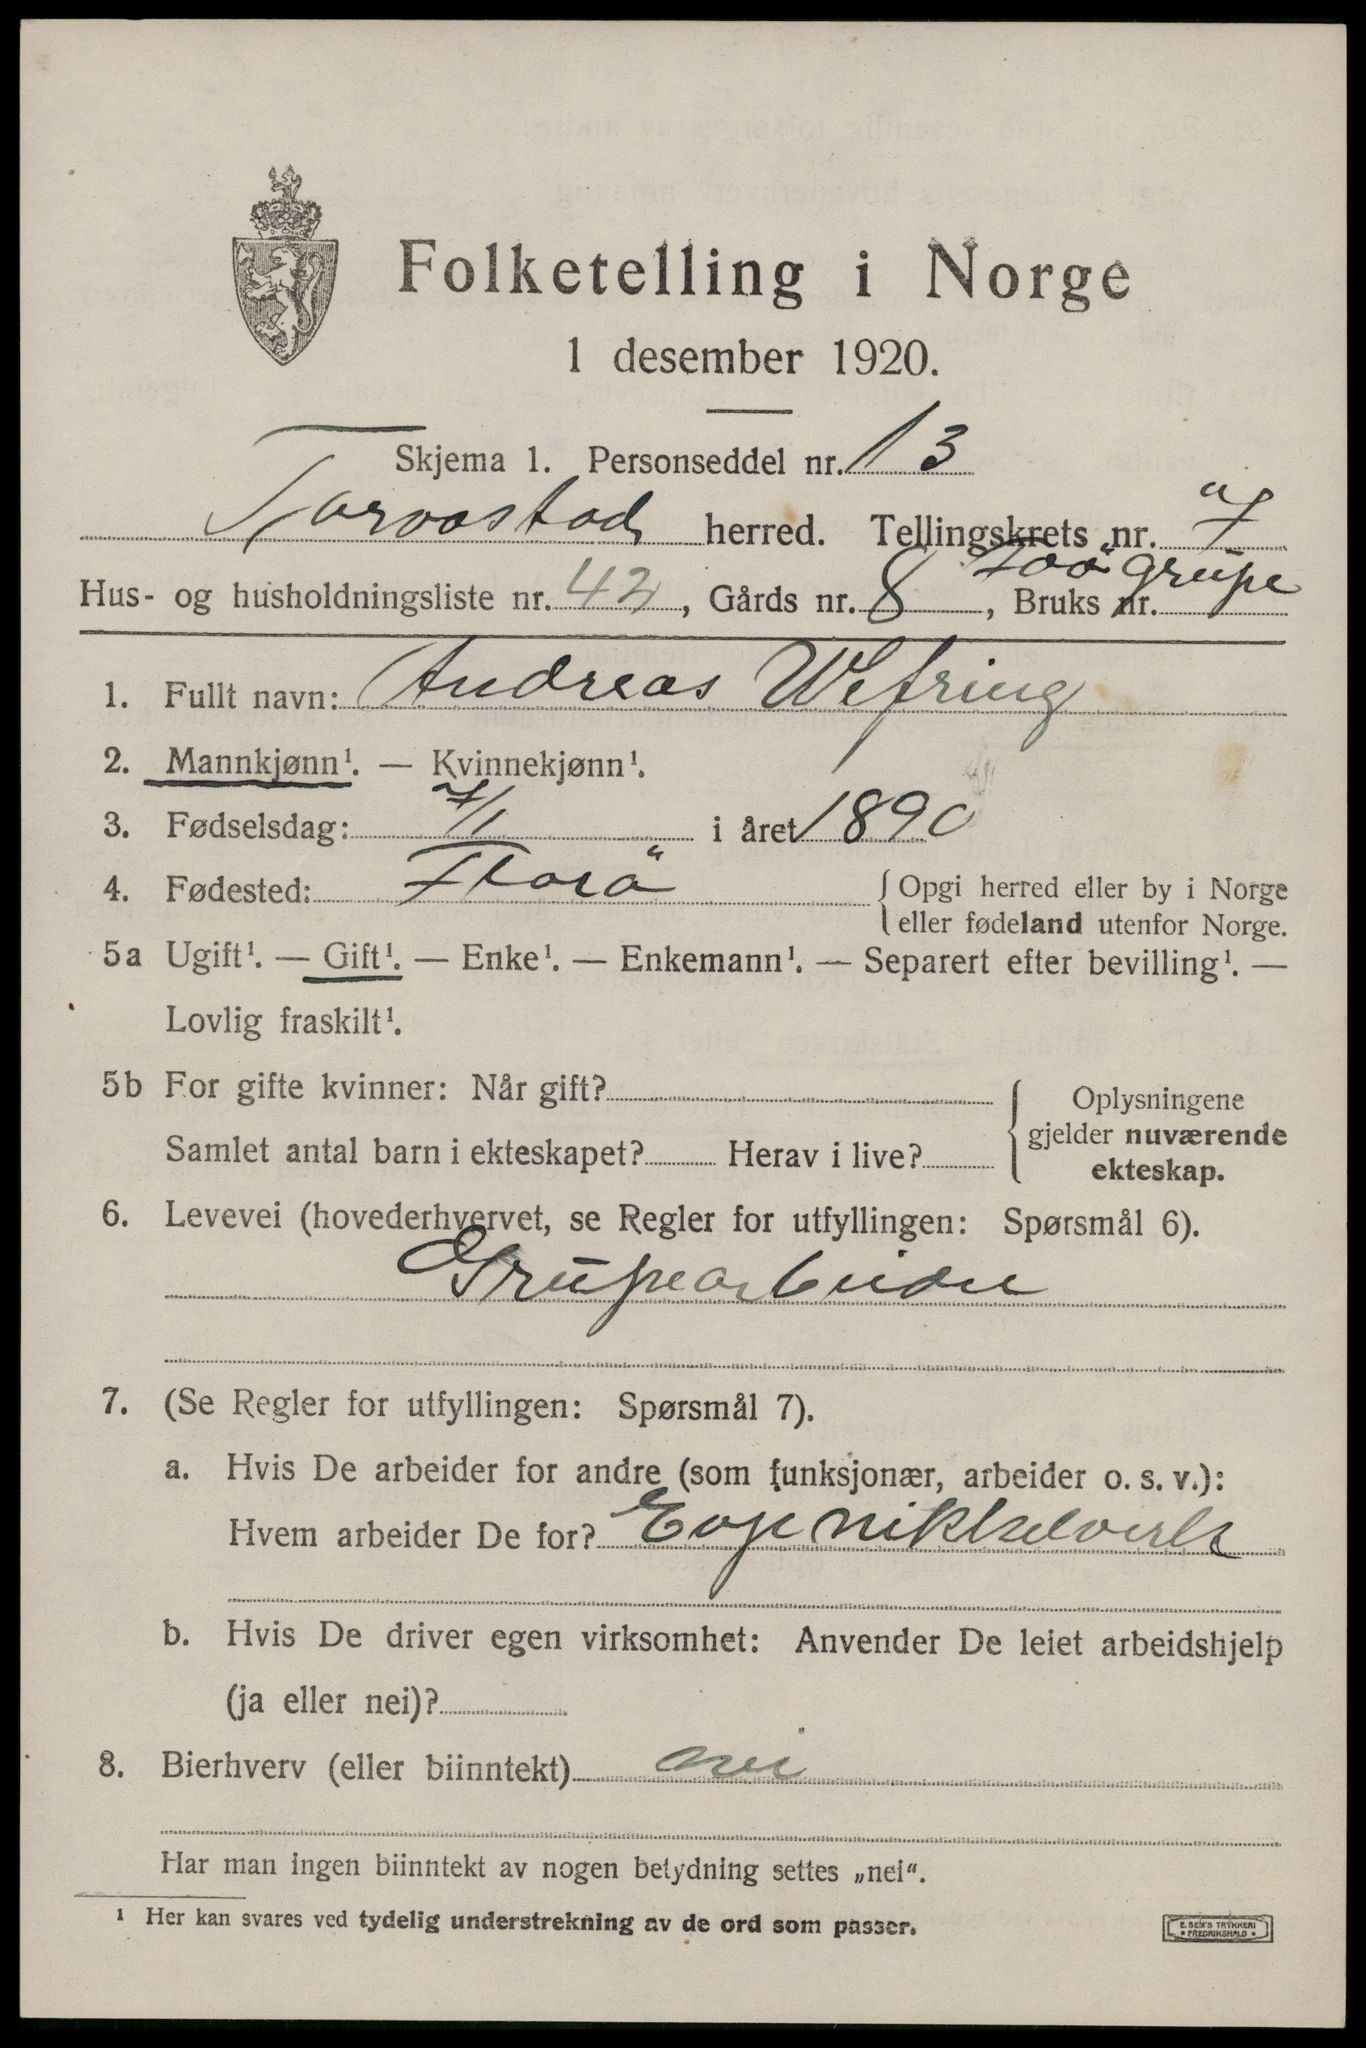 Folketelling i Norge
1 desember 1920.
Skjema 1. Personseddel nr. 13
Torvastad herred. Tellingskrets nr. 7
Hus- og husholdningsliste nr. 42, Gårds nr. 8, Bruks nr. Foö grupe
1. Fullt navn: Andreas Wefring
2. Mannkjønn¹. — Kvinnekjønn¹.
3. Fødselsdag: 7/1 i året 1890
4. Fødested: Florö { Opgi herred eller by i Norge
eller fødeland utenfor Norge.
5a Ugift¹. — Gift¹. — Enke¹. — Enkemann¹. — Separert efter bevilling¹. —
Lovlig fraskilt¹.
5b For gifte kvinner: Når gift? { Oplysningene
gjelder nuværende
ekteskap.
Samlet antal barn i ekteskapet? Herav i live?
6. Levevei (hovederhvervet, se Regler for utfyllingen: Spørsmål 6).
Grupearbeider
7. (Se Regler for utfyllingen: Spørsmål 7).
a. Hvis De arbeider for andre (som funksjonær, arbeider o. s. v.):
Hvem arbeider De for? Evje nikkelverk
b. Hvis De driver egen virksomhet: Anvender De leiet arbeidshjelp
(ja eller nei)?
8. Bierhverv (eller biinntekt) nei
Har man ingen biinntekt av nogen betydning settes „nei“.
¹ Her kan svares ved tydelig understrekning av de ord som passer.
E. SEM'S TRYKKERI
* FREDRIKSHALD *